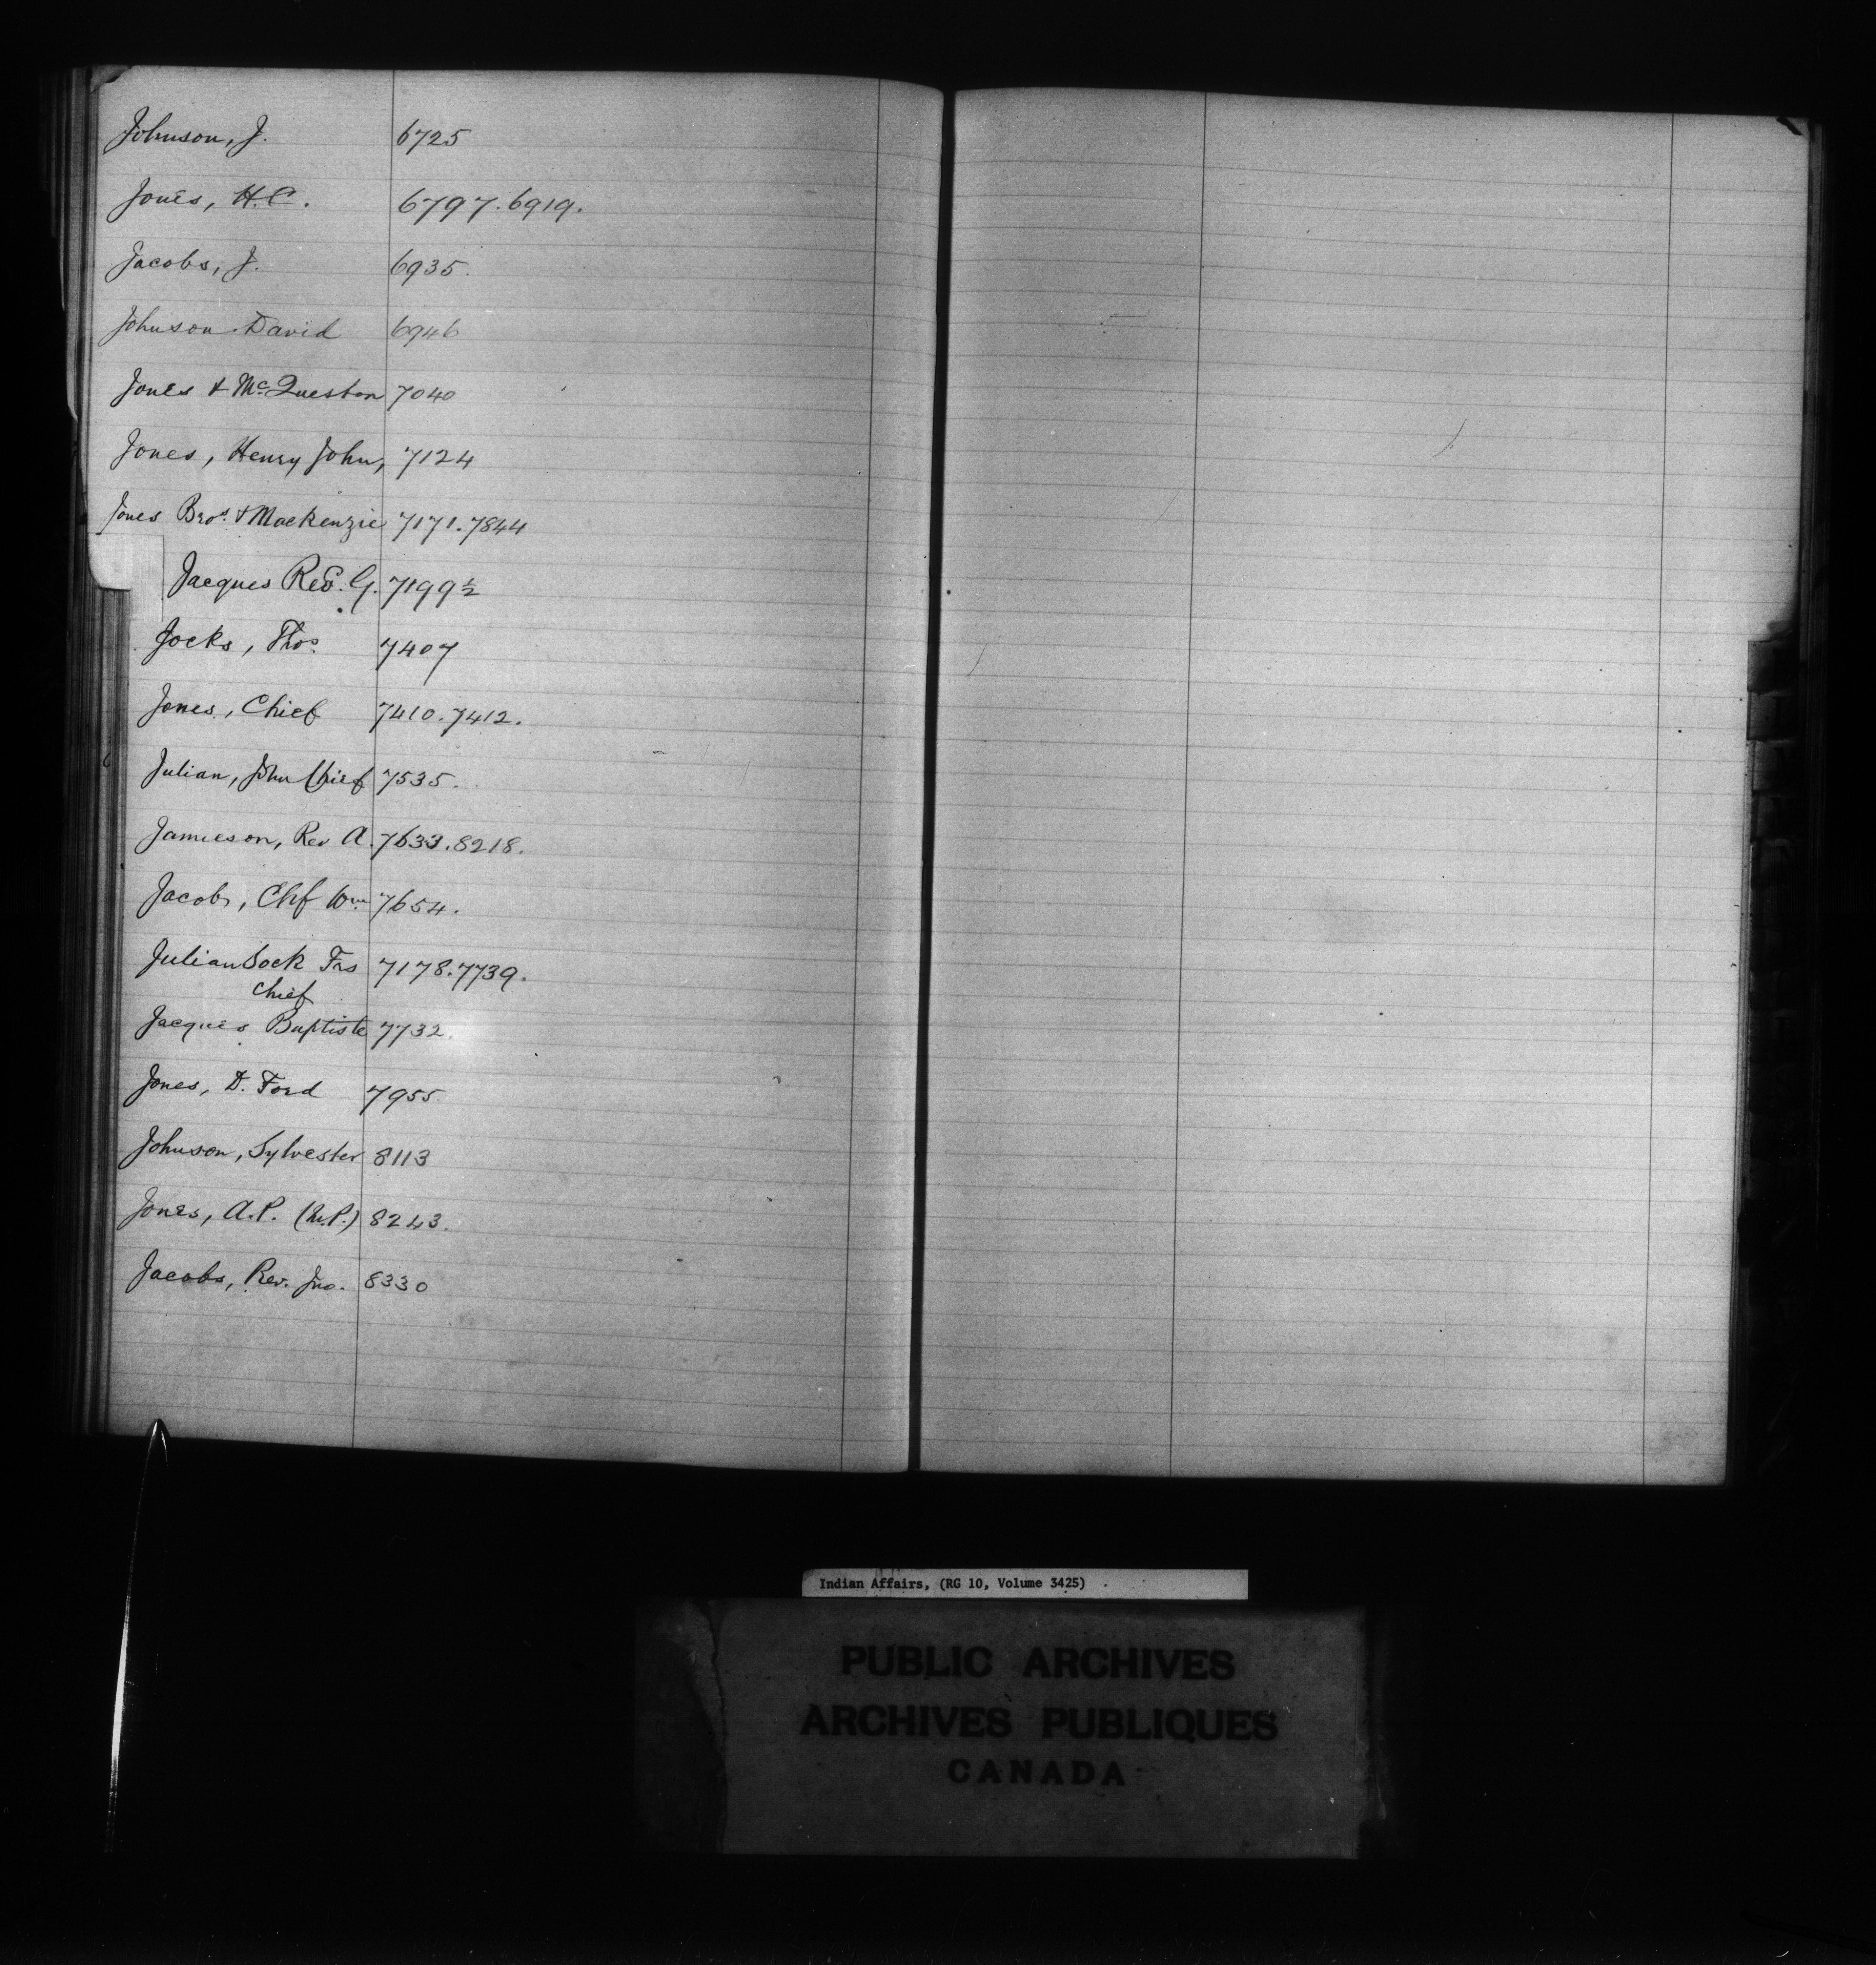 Johnson, J. 6725
Jones, H.C. 6797.6919.
Jacobs, J. 6935.
Johnson David 6946
Jones & McQueston 7040
Jones, Henry John, 7124
Jones Bros. & Mackenzie 7171.7844
Jacques Rev. G. 7199½
Jocks, Thos. 7407
Jones, Chief 7410.7412.
Julian, John Chief 7535.
Jamieson, Rev A. 7633.8218.
Jacobs, Chf Wm. 7654.
Julian Sock Frs 7178.7739.
Chief
Jacques Baptiste 7732.
Jones, D. Ford 7955
Johnson, Sylvester 8113
Jones, A.P. 8243.
Jacobs, Rev. Jno. 8330
Indian Affairs, (RG 10, Volume 3425)
PUBLIC ARCHIVES
ARCHIVES PUBLIQUES
CANADA